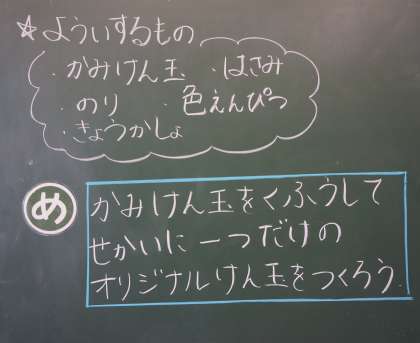 ☆よういするもの
・かみけん玉 ・はさみ
・のり ・色えんぴつ
・きょうかしょ
め
かみけん玉をくふうして
せかいに一つだけの
オリジナルけん玉をつくろう.